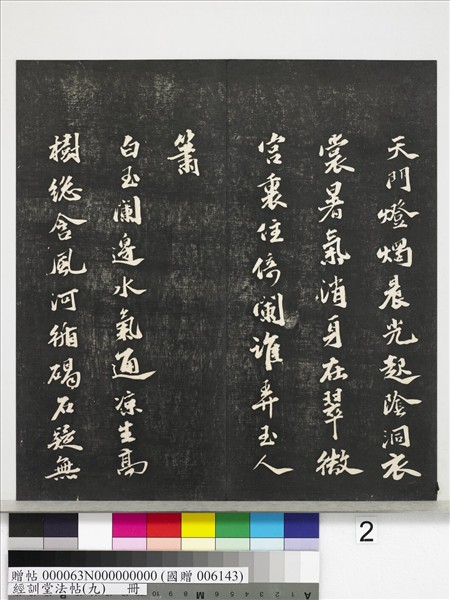 天門燈燭晨光起陰洞衣
裳暑氣消身在翠微
宮裏住倚闌誰弄玉人
簫
白玉闌邊水氣通涼生高
樹總含風河循碣石疑無
2
贈帖 000063N000000000 (國贈 006143)
經訓堂法帖(九) 冊